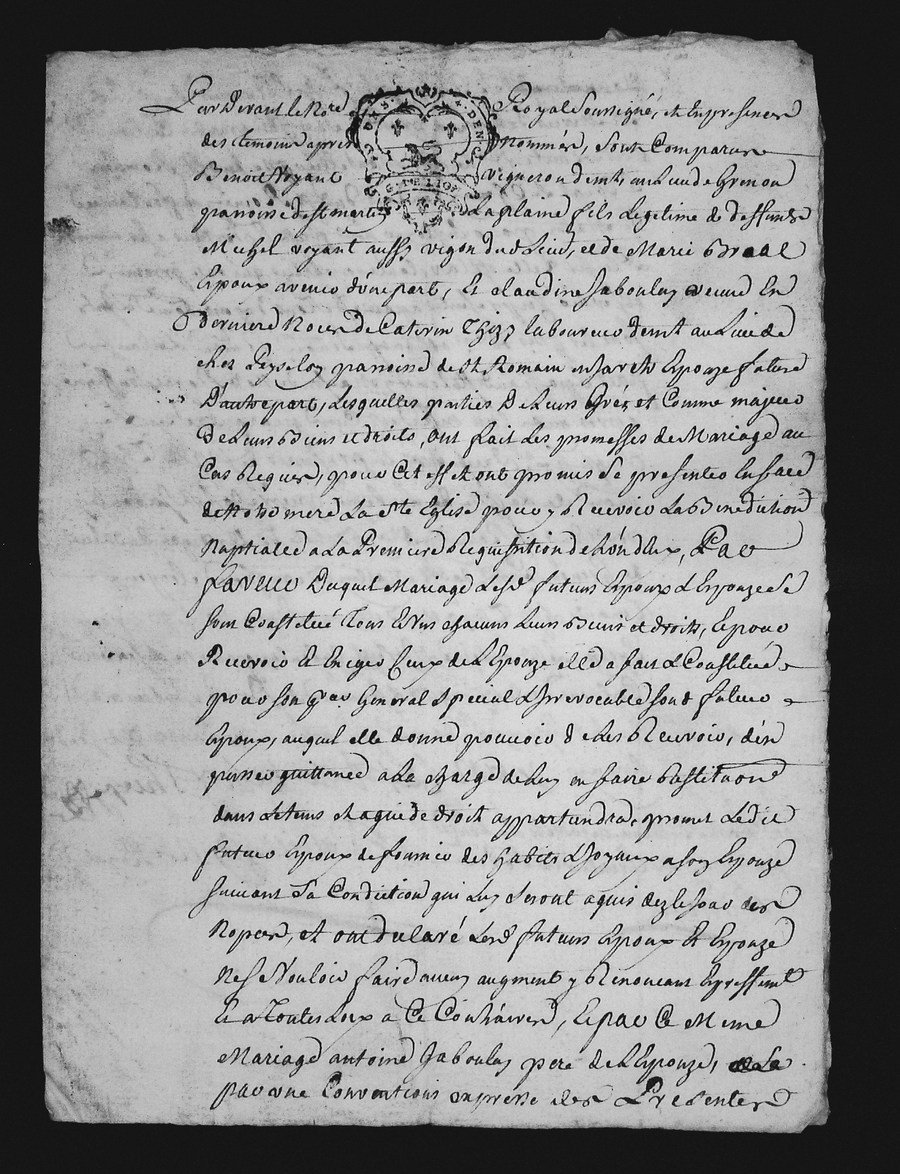 Pardevant le No.re Royal Soussigné, et En presence
des temoins apres Nommés, sont Comparus
Benoit Voyant Vigneron demt. au Lieu de Grenou
paroisse de St martin La plaine fils Legitime de deffunts
Michel voyant aussy vigon dud. Lieu, et de Marie
Epoux avenir d'une part, Et claudine Jaboulay veuve En
derniere Noces de Caterin Thizy laboureur demt au Lieu de
chez Peyselon paroisse de St Romain en Jarets Epouze future
D'autre part, Lesquelles parties de Leurs Gréz et Comme majeurs
de Leurs Biens et droits, ont fait Les promesses de Mariage au
Cas Requises, pour Cet effet ont promis Se presenter En face
de Notre mere La Ste Eglise pour y Recevoir La Benediction
Nuptialle a La Premiere Requisition de L'un d'Eux, Par
faveur Duquel Mariage Lesd. futurs Epoux & Epouze Se
sont Constitué Tous Et Uns chacuns Leurs Biens et droits, Et pour
Recevoir Et Exiger Ceux de L'Epouze elle a fait & Constitué
pour son pror. General Special & Irrevocable sond. futur
Epoux, auquel elle donne pouvoir de Les Recevoir, d'en
passer quittance a La charge de Luy en faire Restitution
dans Le tems et a qui de droit appartiendra, promet Ledit
futur Epoux de fournir des habits & Joyaux a son Epouze
suivant Sa Condiction qui Luy Seront aquis dez le jour des
Nopces, et ont declaré Lesd. futurs Epoux Et Epouze
Ne se Vouloir faire aucun augment y Renonceans Expressemt.
Et a Toutes Loix a Ce Contraires, Et par Ce Meme
Mariage antoine Jaboulay pere de L'Epouze,
par une Conventions expresse des Presentes